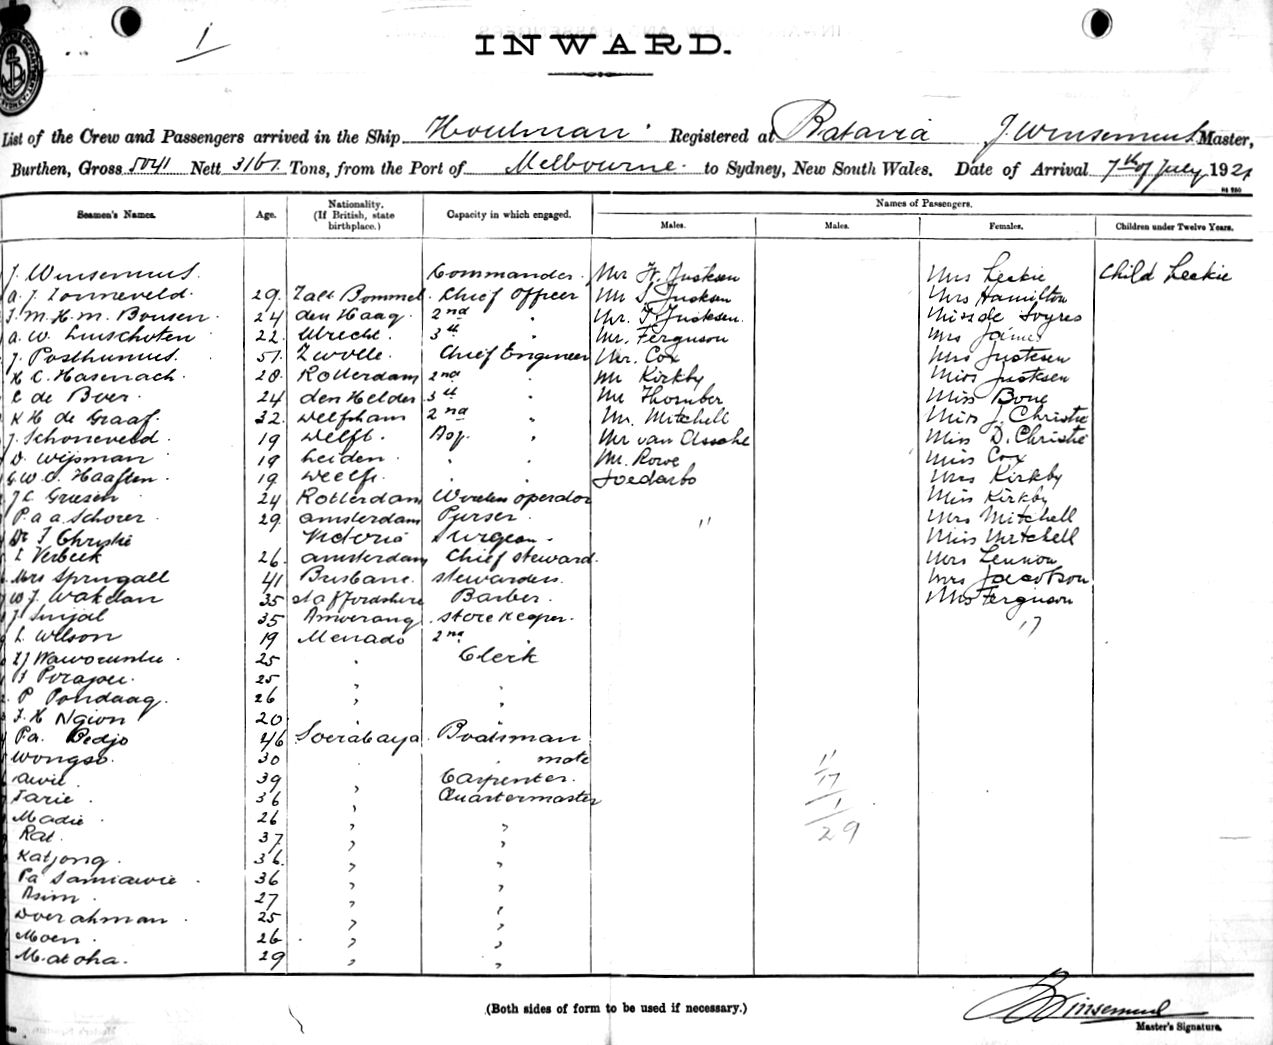 1
INWARD.
List of the Crew and Passengers arrived in the Ship Houtman Registered at Batavia J. Winsemius Master,
Burthen, Gross 5041 Nett 3161 Tons, from the Port of Melbourne to Sydney, New South Wales. Date of Arrival 7th of July 1921
Seamen's Names. Age. Nationality. (If British, state birthplace.) Capacity in which engaged. Names of Passengers.
Males. Males. Females. Children under Twelve Years.
J. Winsemius. Commander. Mr Mrs Leckie Child Leckie
A. J. Zonneveld. 29. Zalt Bommel. Chief Officer Mr Mrs Hamilton
J. M. H. M. Bousen. 24 den Haag. 2nd " Mr. Miss de
A. W. Linschoten 22. Utrecht. 3th " Mr. Ferguson Mrs James
J. Posthumus. 51. Zwolle. Chief Engineer Mr. Cox Mrs
H. C. Hasenach. 28. Rotterdam 2nd " Mr Kirkby Miss
de Boer. 24 den Helder 3th " Mr Thornber Miss Bone
K H de Graaf. 32. 2nd " Mr. Mitchell Miss J. Christie
J. Schoneveld. 19 Delft. " Mr van Assche Miss D. Christie
D. Wijsman 19 Leiden. " Mr. Rowe Miss Cox
G. W. Haaften. 19 " Soedarbo Mrs Kirkby
24 Rotterdam Wireless operator Miss Kirkby
P. a a Schorer. 29. Amsterdam Purser. 11 Mrs Mitchell
Dr J Christie Victoria Surgeon. Miss Mitchell
Verbeek 26. Amsterdam Chief steward. Mrs Lennon
Mrs Springall 41 Brisbane. Stewardess. Mrs Jacobson
W J. Wakelan 35 Staffordshire Barber. Mrs Ferguson
J. 35 Amoerang Storekeeper. 17
L. Wilson 19 Menado 2nd "
25 " Clerk
25 " "
P Pondaag. 26 " "
J. H Ngion 20 " "
Pa. Bedjo 46 Soerabaya Boatsman
Wongso. 30 " " mate 11
39 " Carpenter. 17
Tarie. 36 " Quartermaster 1
Madie. 26 " " 29
Rat. 37 " "
Katjong. 36. " "
Pa Samiawie 36 " "
Asim. 27 " "
Doerahman 25 " "
Moen. 26 " "
Matoha. 29 " "
(Both sides of form to be used if necessary.) J Winsemius
Master's Signature.